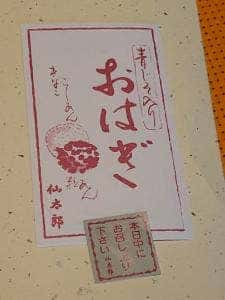 青じそ入り
おはぎ
きなこ
こしあん
粒あん
仙太郎
本日中に
お召し上り
下さい
仙太郎